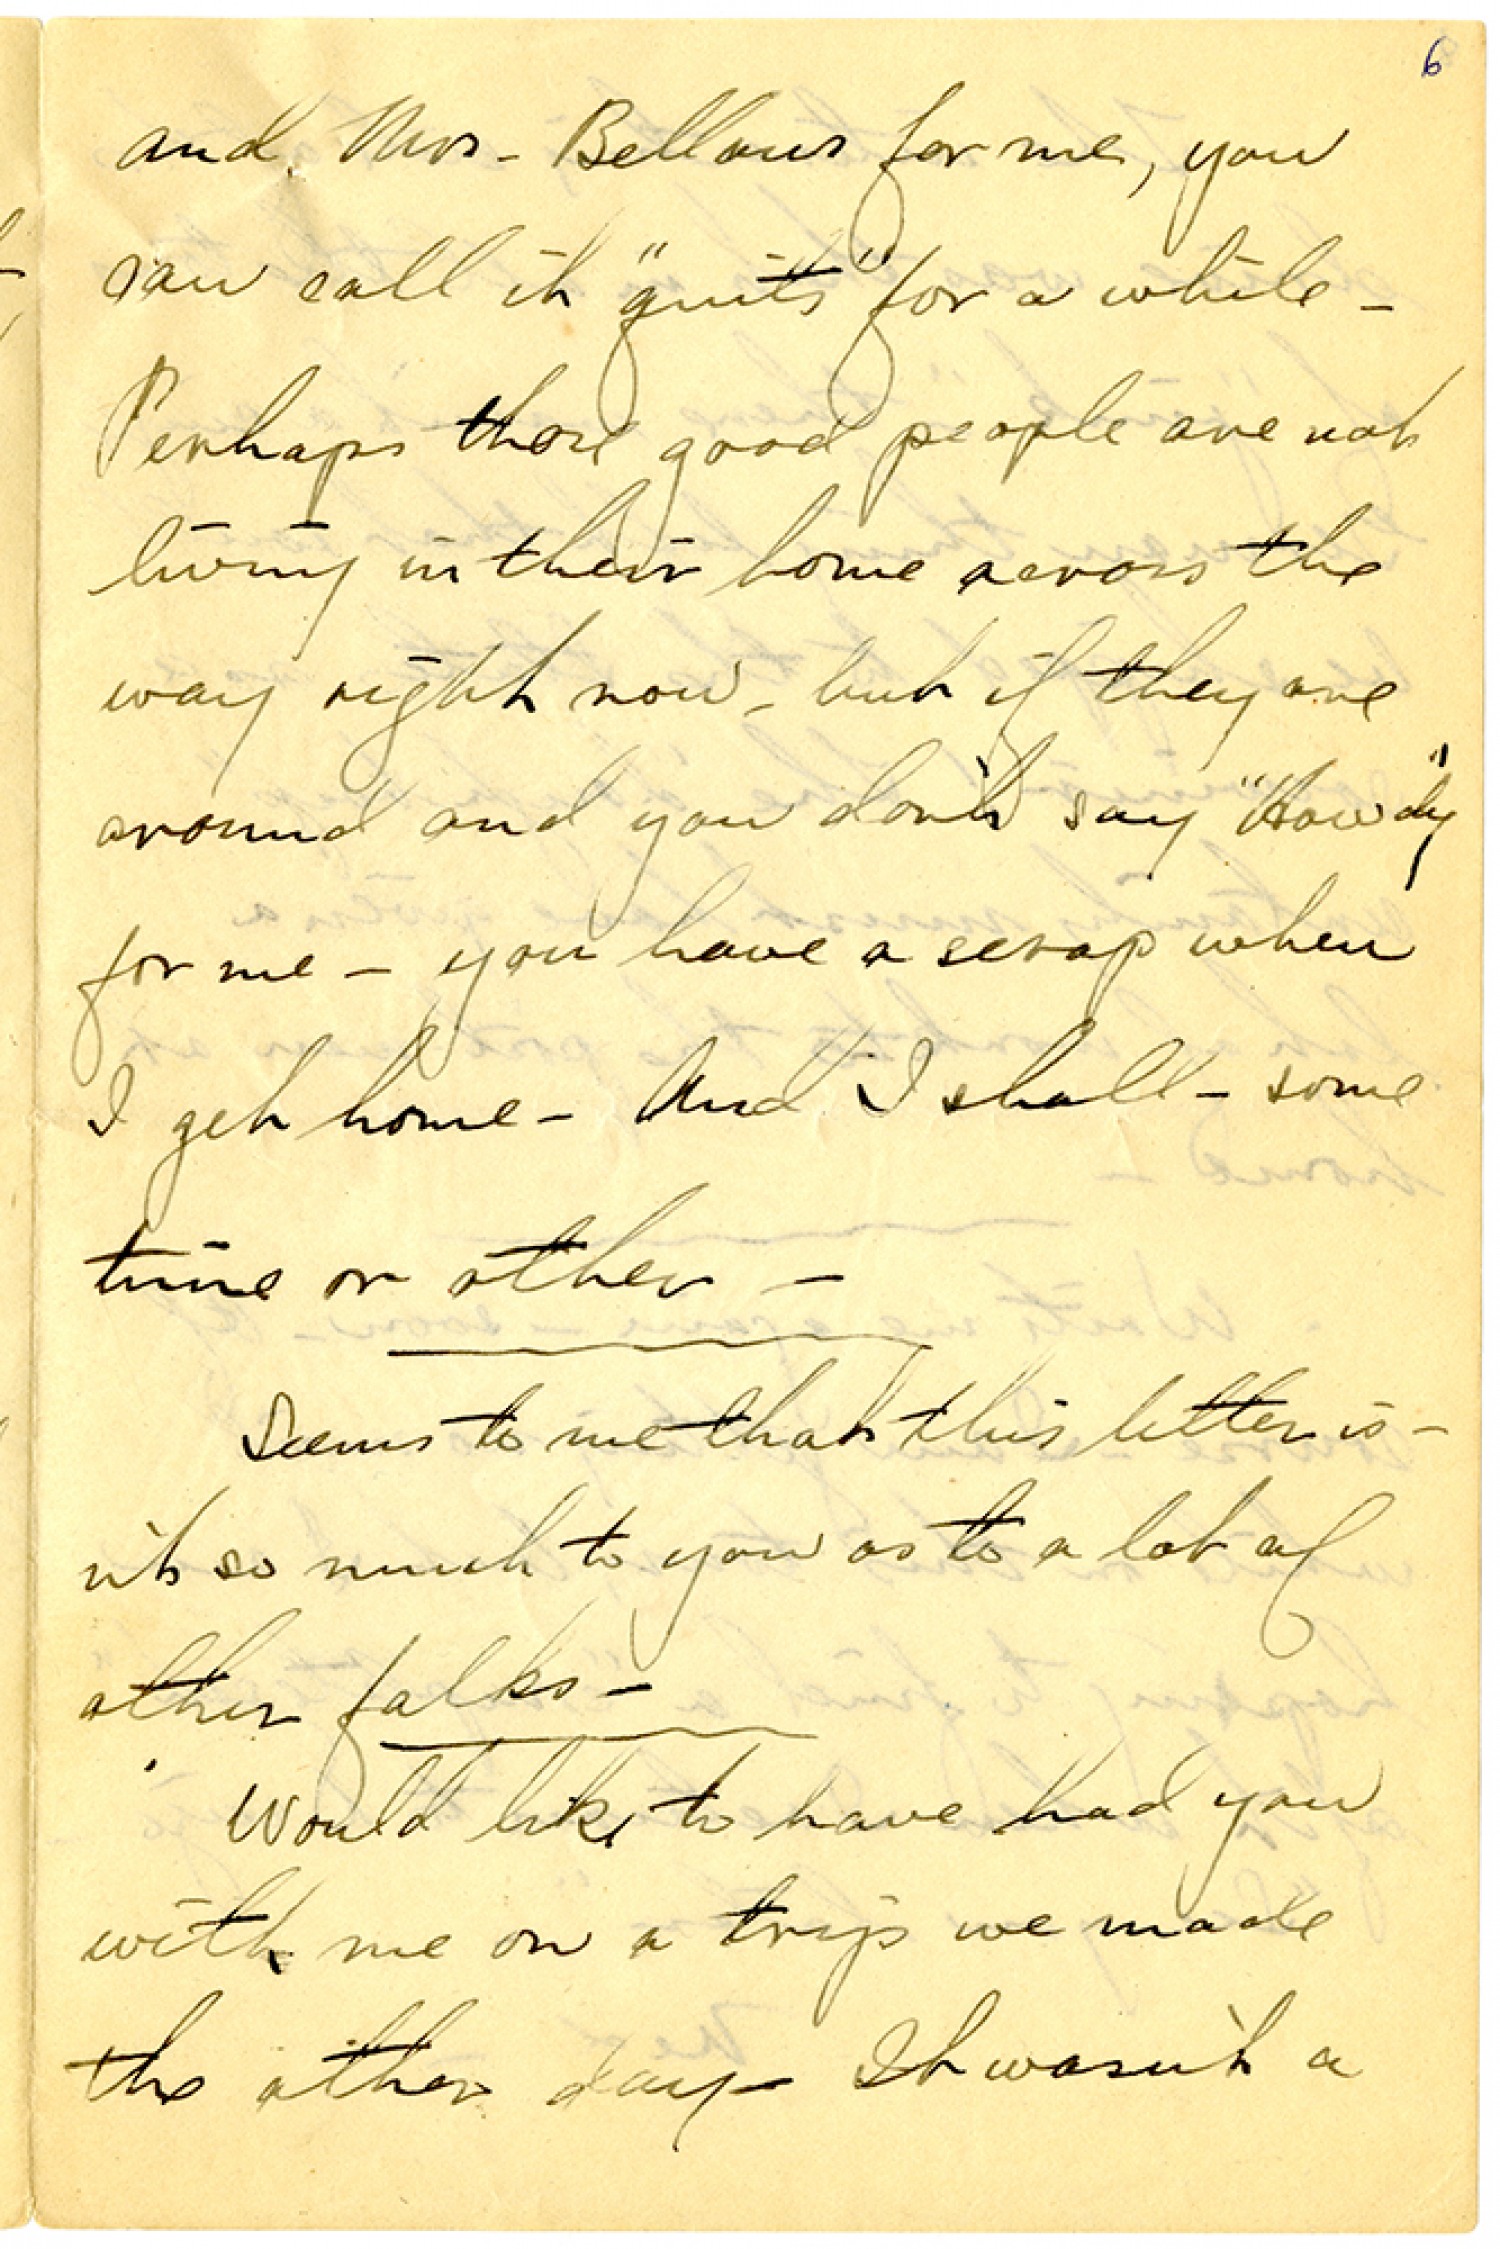 6
and Mrs - Bellows for me, you
can call it "quits" for a while -
Perhaps those good people are not
living in their home across the
way right now - but if they are
around and you don't say "Howdy"
for me - you have a scrap when
I get home - And I shall - some
time or other -
Seems to me that this letter is -
n't so much to you as to a lot of
other folks -
Would like to have had you
with me on a trip we made
the other day - It wasn't a